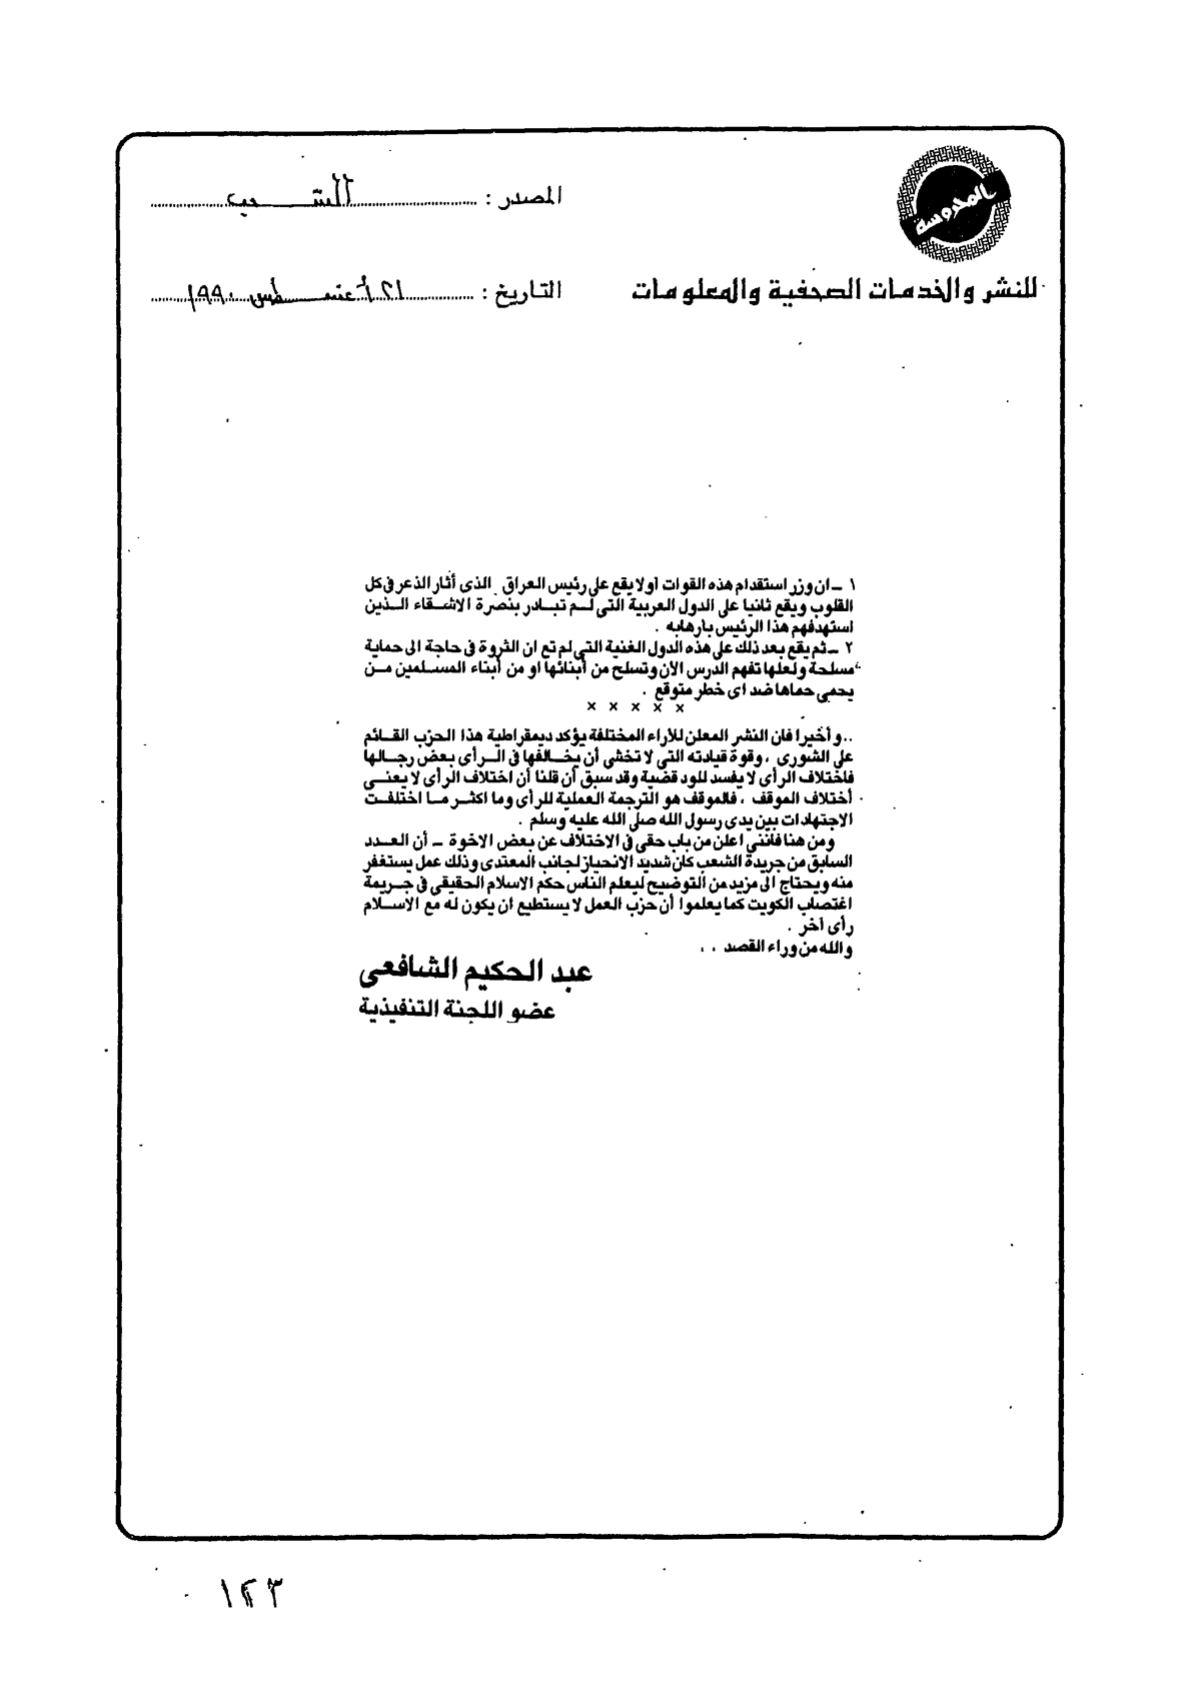 المحروسة
للنشر والخدمات الصحفية والمعلومات
المصدر : الشعب
التاريخ : ٢١ أغسطس ١٩٩٠
١ ــ ان وزر استقدام هذه القوات اولا يقع على رئيس العراق الذى أثار الذعر فى كل
القلوب ويقع ثانيا على الدول العربية التى لم تبادر بنصرة الاشقاء الذين
استهدفهم هذا الرئيس بارهابه .
٢ ــ ثم يقع بعد ذلك على هذه الدول الغنية التى لم تع ان الثروة فى حاجة الى حماية
مسلحة ولعلها تفهم الدرس الآن وتسلح من أبنائها او من أبناء المسلمين من
يحمى حماها ضد اى خطر متوقع .
× × × × ×
.. وأخيرا فان النشر المعلن للأراء المختلفة يؤكد ديمقراطية هذا الحزب القائم
على الشورى ، وقوة قيادته التى لا تخشى أن يخالفها فى الرأى بعض رجالها
فاختلاف الرأى لا يفسد للود قضية وقد سبق أن قلنا أن اختلاف الرأى لا يعنى
أختلاف الموقف ، فالموقف هو الترجمة العملية للرأى وما اكثر ما اختلفت
الاجتهادات بين يدى رسول الله صلى الله عليه وسلم .
ومن هنا فاننى اعلن من باب حقى فى الاختلاف عن بعض الاخوة ــ أن العدد
السابق من جريدة الشعب كان شديد الانحياز لجانب المعتدى وذلك عمل يستغفر
منه ويحتاج الى مزيد من التوضيح ليعلم الناس حكم الاسلام الحقيقى فى جريمة
اغتصاب الكويت كما يعلموا أن حزب العمل لا يستطيع ان يكون له مع الاسلام
رأى آخر .
والله من وراء القصد ، ،
عبد الحكيم الشافعى
عضو اللجنة التنفيذية
١٢٣